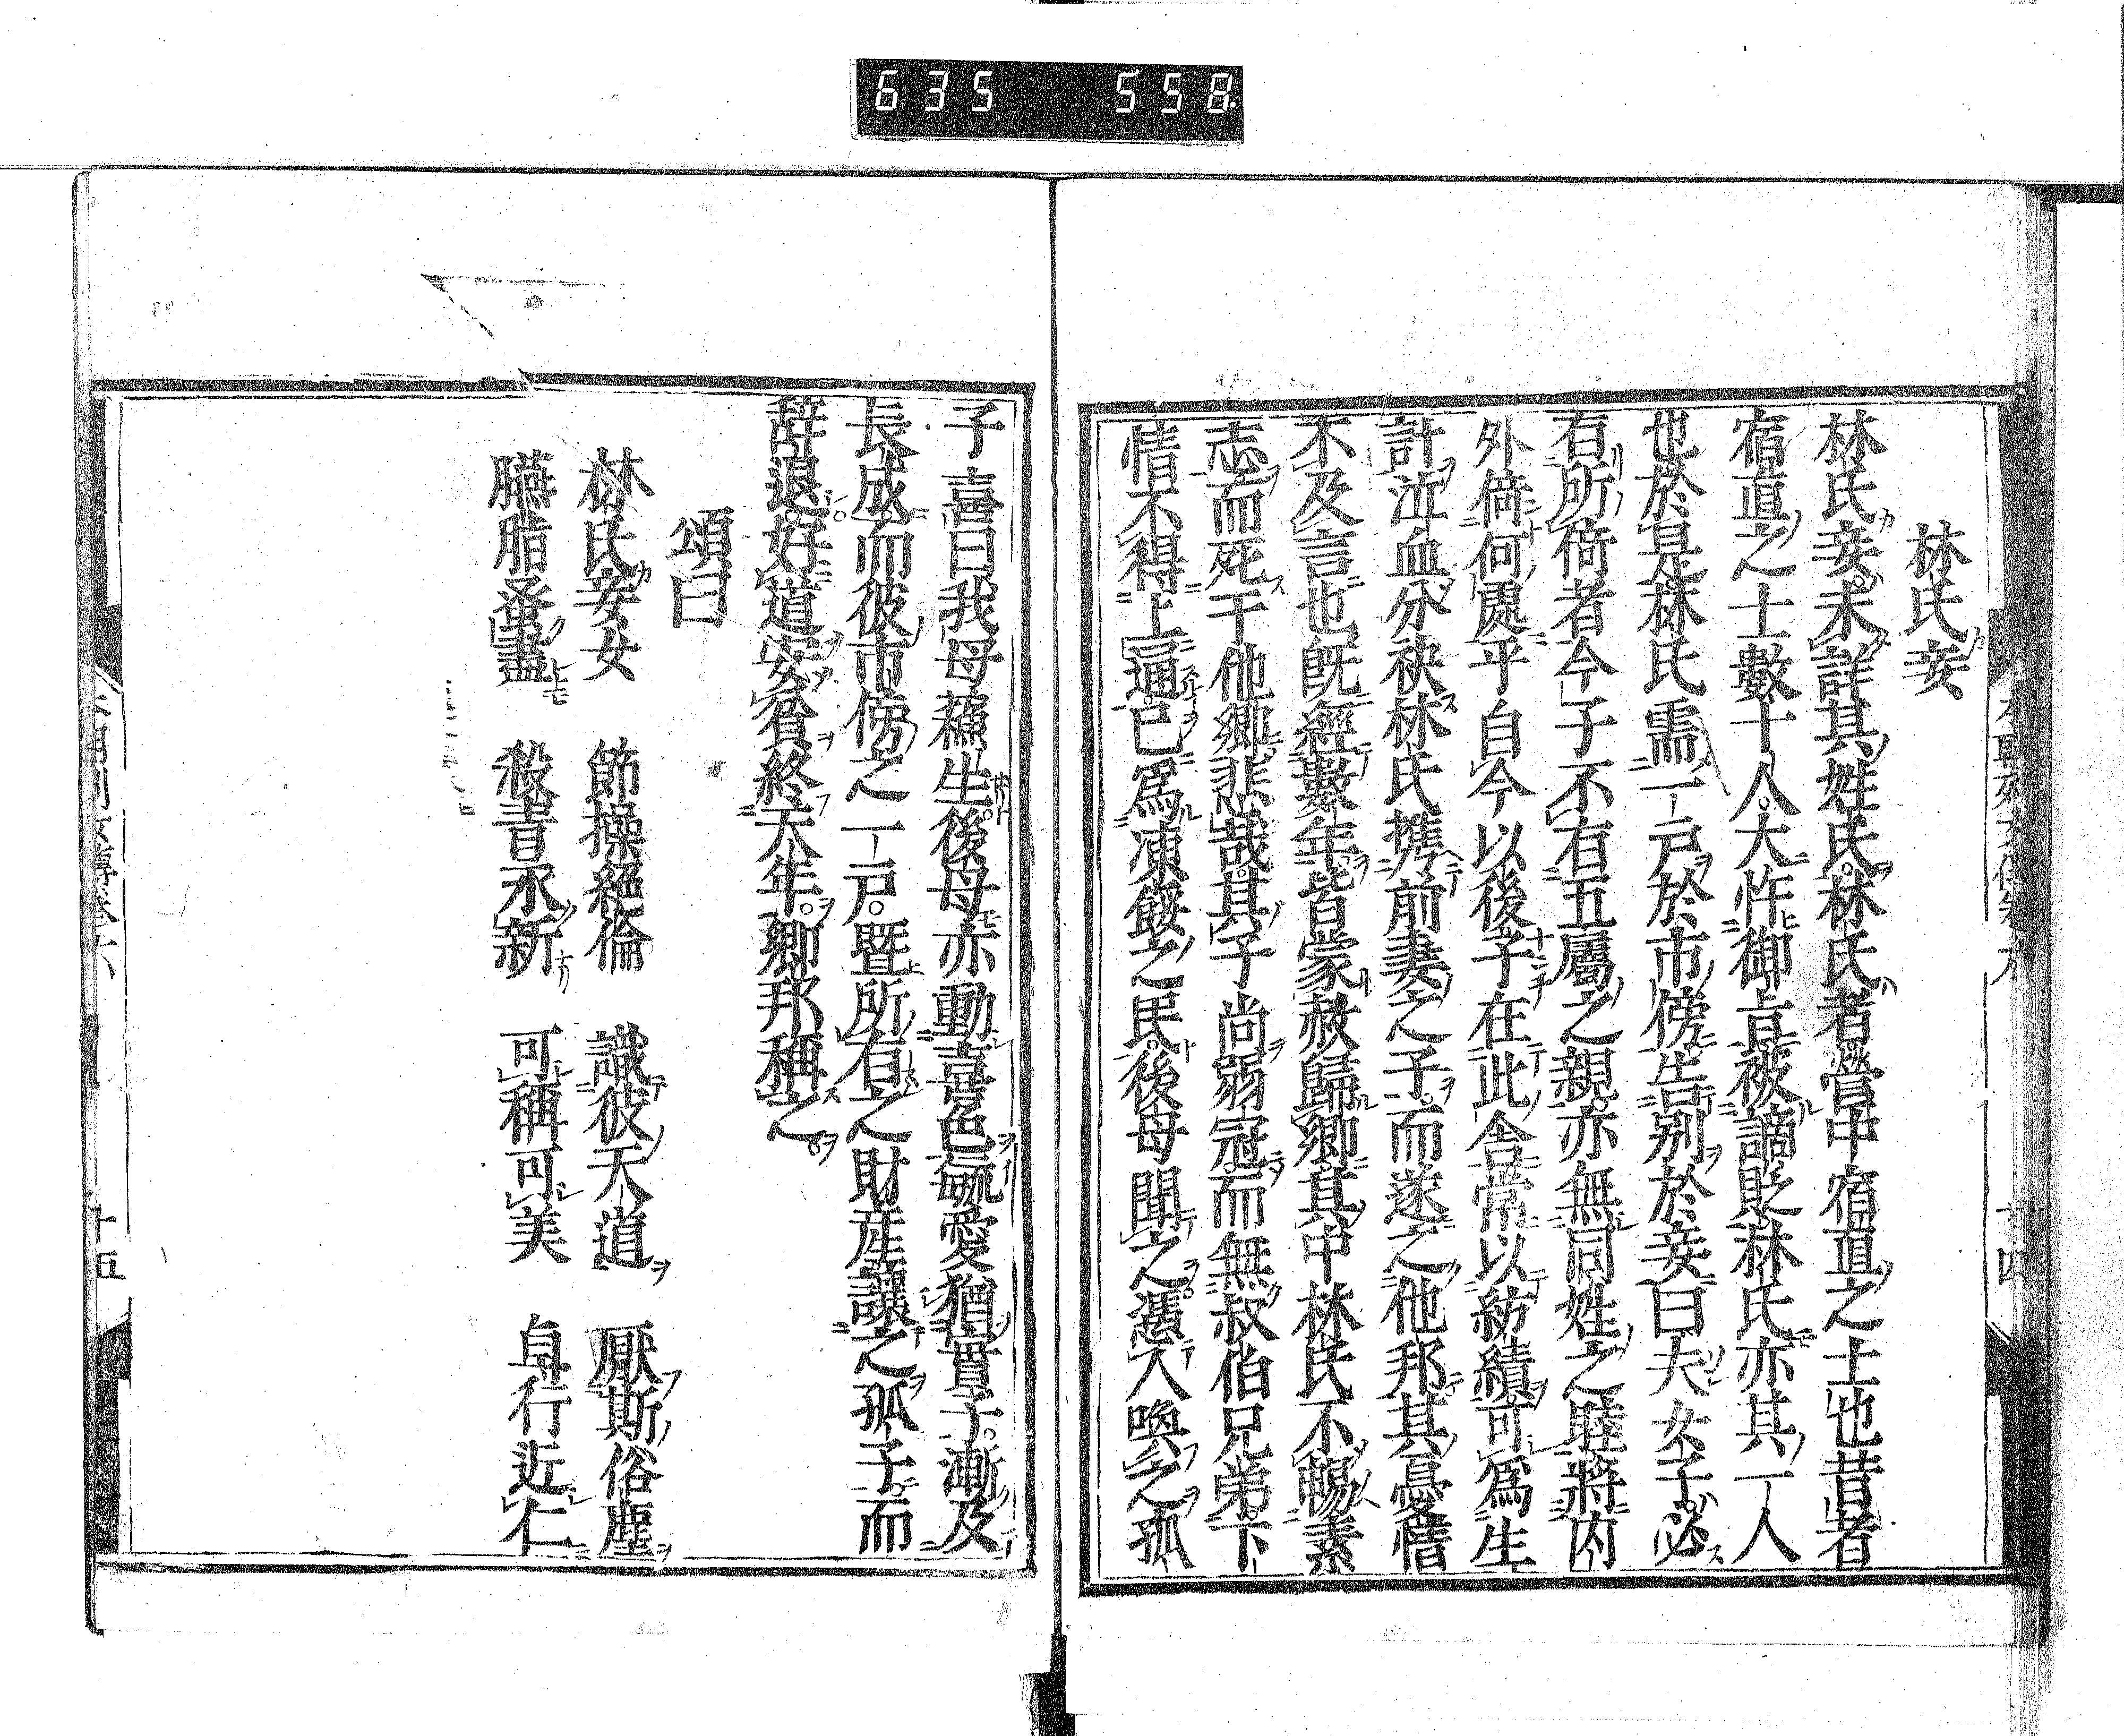 635 558
林氏妾
林氏妾未詳其姓氏林氏者營中宿直之士也昔者
宿直之士數十人大忤御旨被謫貶林氏亦其一人
也於是林氏需一戸於市傍告别於妾曰夫女子必
有所倚者今子不有五屬之親亦無同姓之睦將内
外倚何處乎自今以後子在此舎常以紡績可爲生
計泣血分袂林氏携前妻之子而遂之他邦其憂情
不及言也旣經數年皆蒙赦歸郷其中林氏不賜素
志而死于他郷悲哉其子尚弱冠而無叔伯兄弟下
情不得上通已爲凍餒之民後母聞之憑人喚之孤
子喜曰我母蘓生後母亦動喜色毓愛猶實子漸及
長成而彼市傍之一戸暨所有之財産讓之孤子而
辭退好道安貧終天年郷邦稱之
頌曰
林氏妾女 節操絶倫 識彼天道 厭斯俗塵
臙脂蚤盡 殺青永新 可稱可美 身行近仁
十五